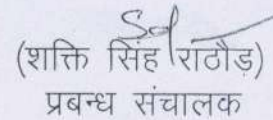 Sd/
(शक्ति सिंह राठौड़)
प्रबन्ध संचालक